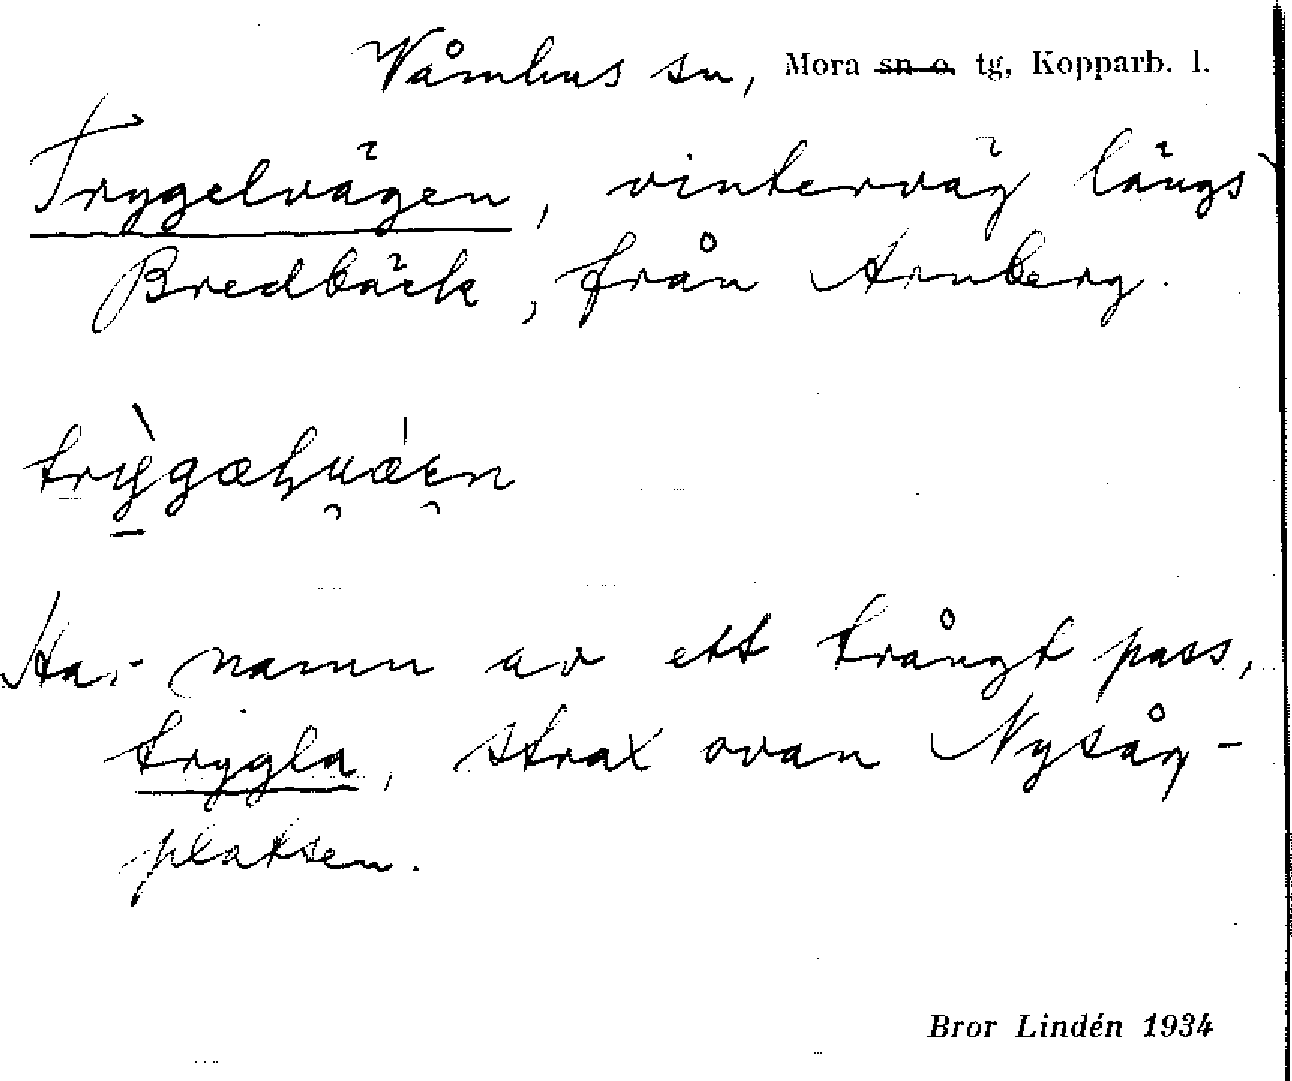 Våmhus sn, Mora ~~sn o.~~ tg, Kopparb. l.
Trygelvägen, vinterväg längs
Bredbäck, från Arnberg.
Har namn av ett trångt pass,
trygla, strax ovan Nysåg-
platsen.
Bror Lindén 1934